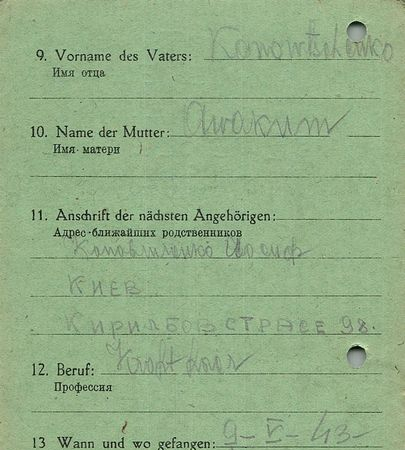 9. Vorname des Vaters: Kanowtschenko
Имя отца
10. Name der Mutter: Awakum
Имя матери
11. Anschrift der nächsten Angehörigen:
Адрес ближайших родственников
Иосиф
КИЕВ
98.
12. Beruf:
Профессия
13 Wann und wo gefangen: 9-V-43-